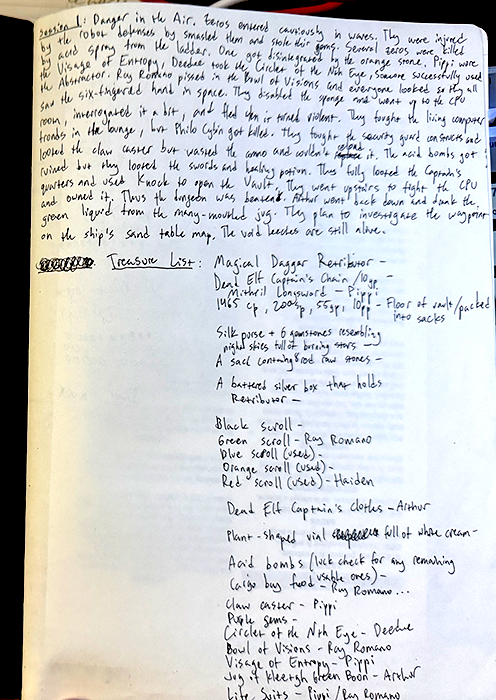 Session 1: Danger in the Air. Zeros entered cautiously in waves. They were injured
by the robot defenses by smashed them and stole their gems. Several zeros were killed
by acid spray from the ladder. One got disintegrated by the orange stone. Pippi wore
the Visage of Entropy, Deedue took the Circlet of the Nth Eye, someone successfully used
the Abstractor. Ray Romano pissed in the Bowl of Visions and everyone looked so they all
saw the six-fingered hand in space. They disabled the sponge and went up to the CPU
room, interrogated it a bit, and fled when it turned violent. They fought the living computer
fronds in the lounge, but Philo Cybin got killed. They fought the security guard constructs and
looted the claw caster but wasted the ammo and couldn't reload it. The acid bombs got
ruined but they looted the swords and healing potion. They fully looted the Captain's
quarters and used Knock to open the Vault. They went upstairs to fight the CPU
and owned it. Thus the dungeon was beaten. Arthur went back down and drank the
green liquid from the many-mouthed jug. They plan to investigate the waypoint
on the ship's sand table map. The void leeches are still alive.
Treasure List: Magical Dagger Retributor -
Dead Elf Captain's Chain / 10gp -
Mithril Longsword - Pippi
1465 cp, 200sp, 55gp, 10pp - Floor of vault/packed
into sacks
Silk purse + 6 gemstones resembling
night skies full of burning stars -
A sack containing 8 red raw stones -
A battered silver box that holds
Retributor -
Black scroll -
Green scroll - Ray Romano
Blue scroll (used) -
Orange scroll (used) -
Red scroll (used) - Haiden
Dead Elf Captain's clothes - Arthur
Plant-shaped vial full of white cream -
Acid bombs (luck check for any remaining
usable ones) -
Cargo bay food - Ray Romano...
Claw caster - Pippi
Purple gems -
Circlet of the Nth Eye - Deedue
Bowl of Visions - Ray Romano
Visage of Entropy - Pippi
Jug of Green Boon - Arthur
Life Suits - Pippi / Ray Romano